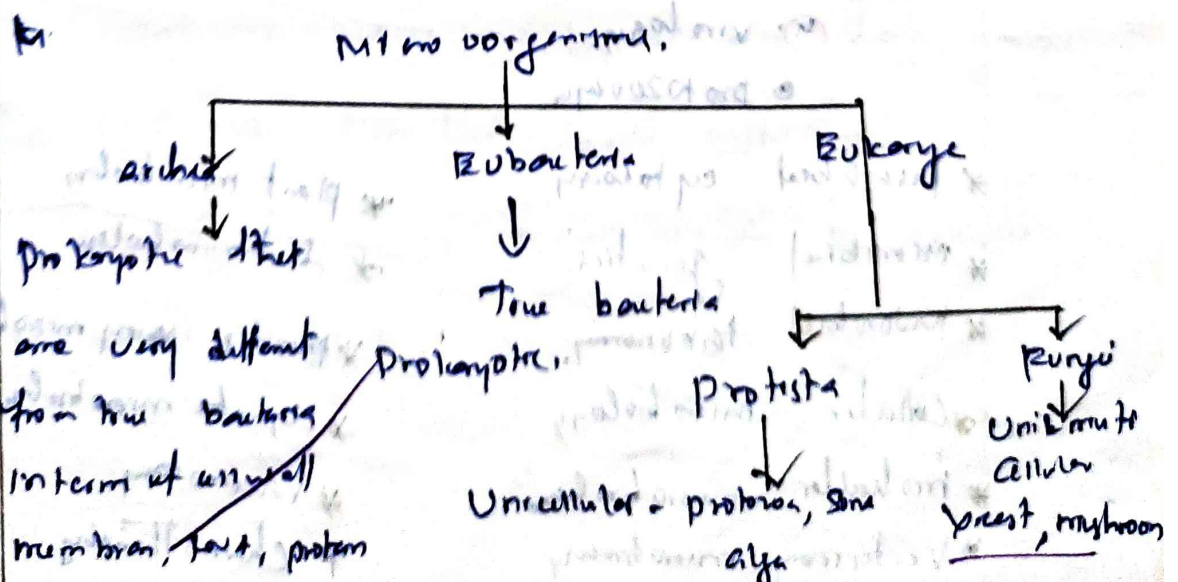 Microorganisms.
archea
Eubacteria
Eukarye
Prokaryotic that
are very different
from true bacteria
interm of cell wall
membran, protein
True bacteria
Prokaryotic.
Protista
Unicellular - protozoa, some
alga
Fungi
Uni & multi
cellular
yeast, mushroom